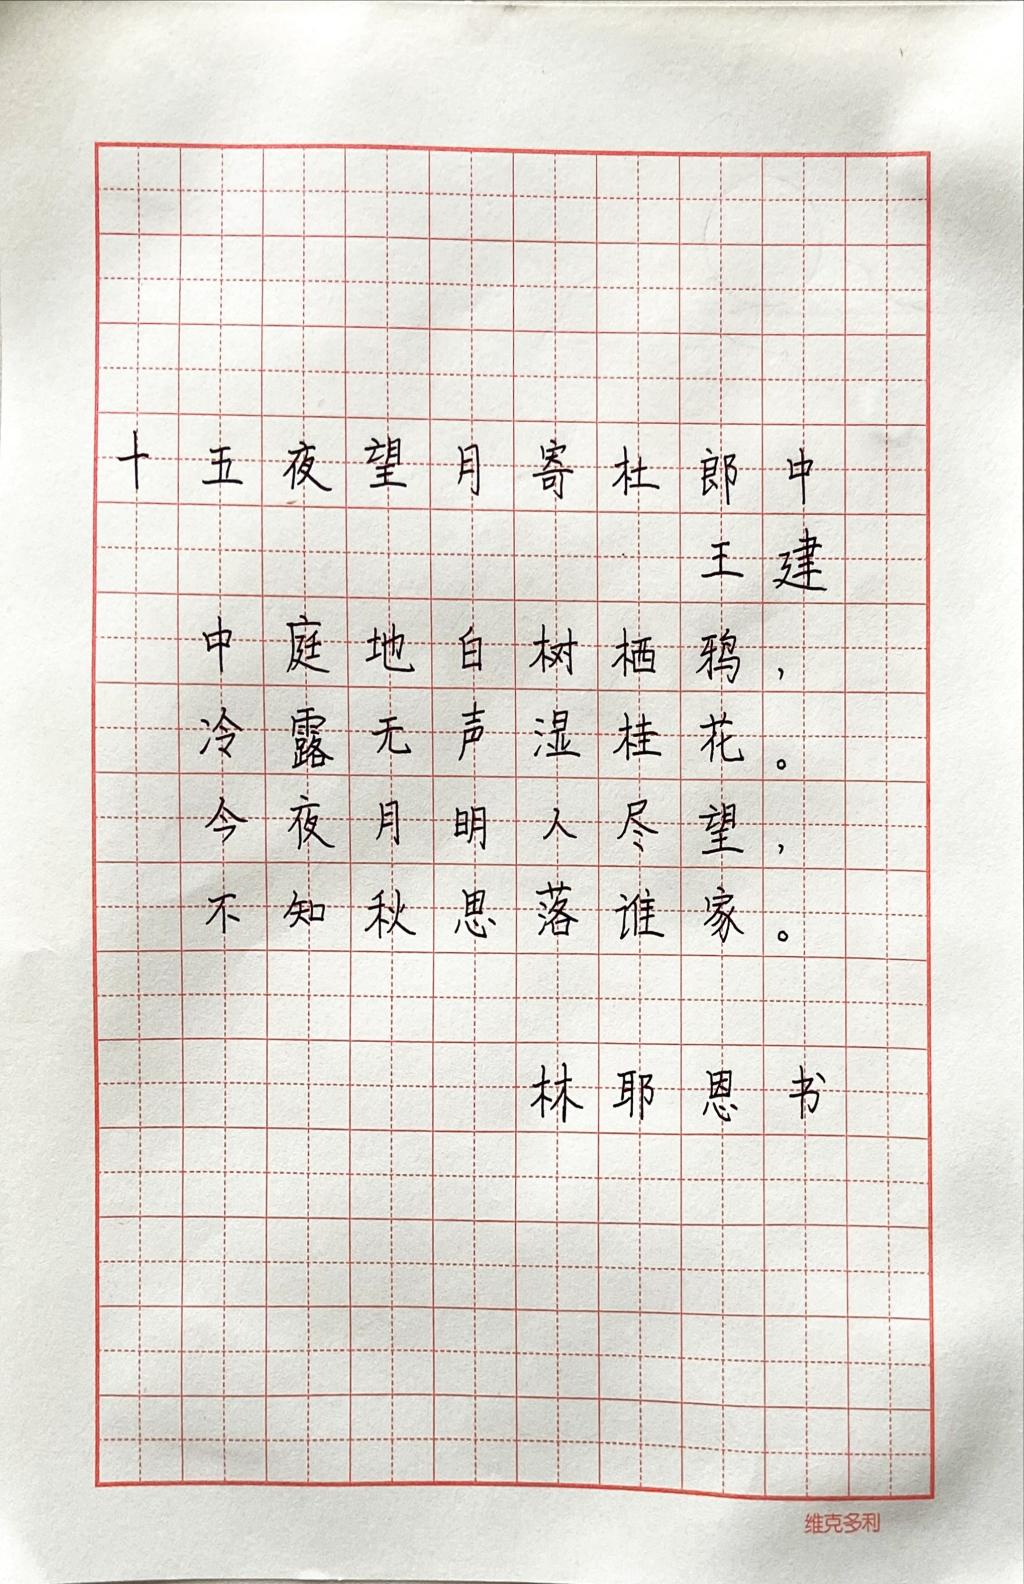 十五夜望月寄杜郎中
王建
中庭地白树栖鸦，
冷露无声湿桂花。
今夜月明人尽望，
不知秋思落谁家。
林耶恩书
维克多利